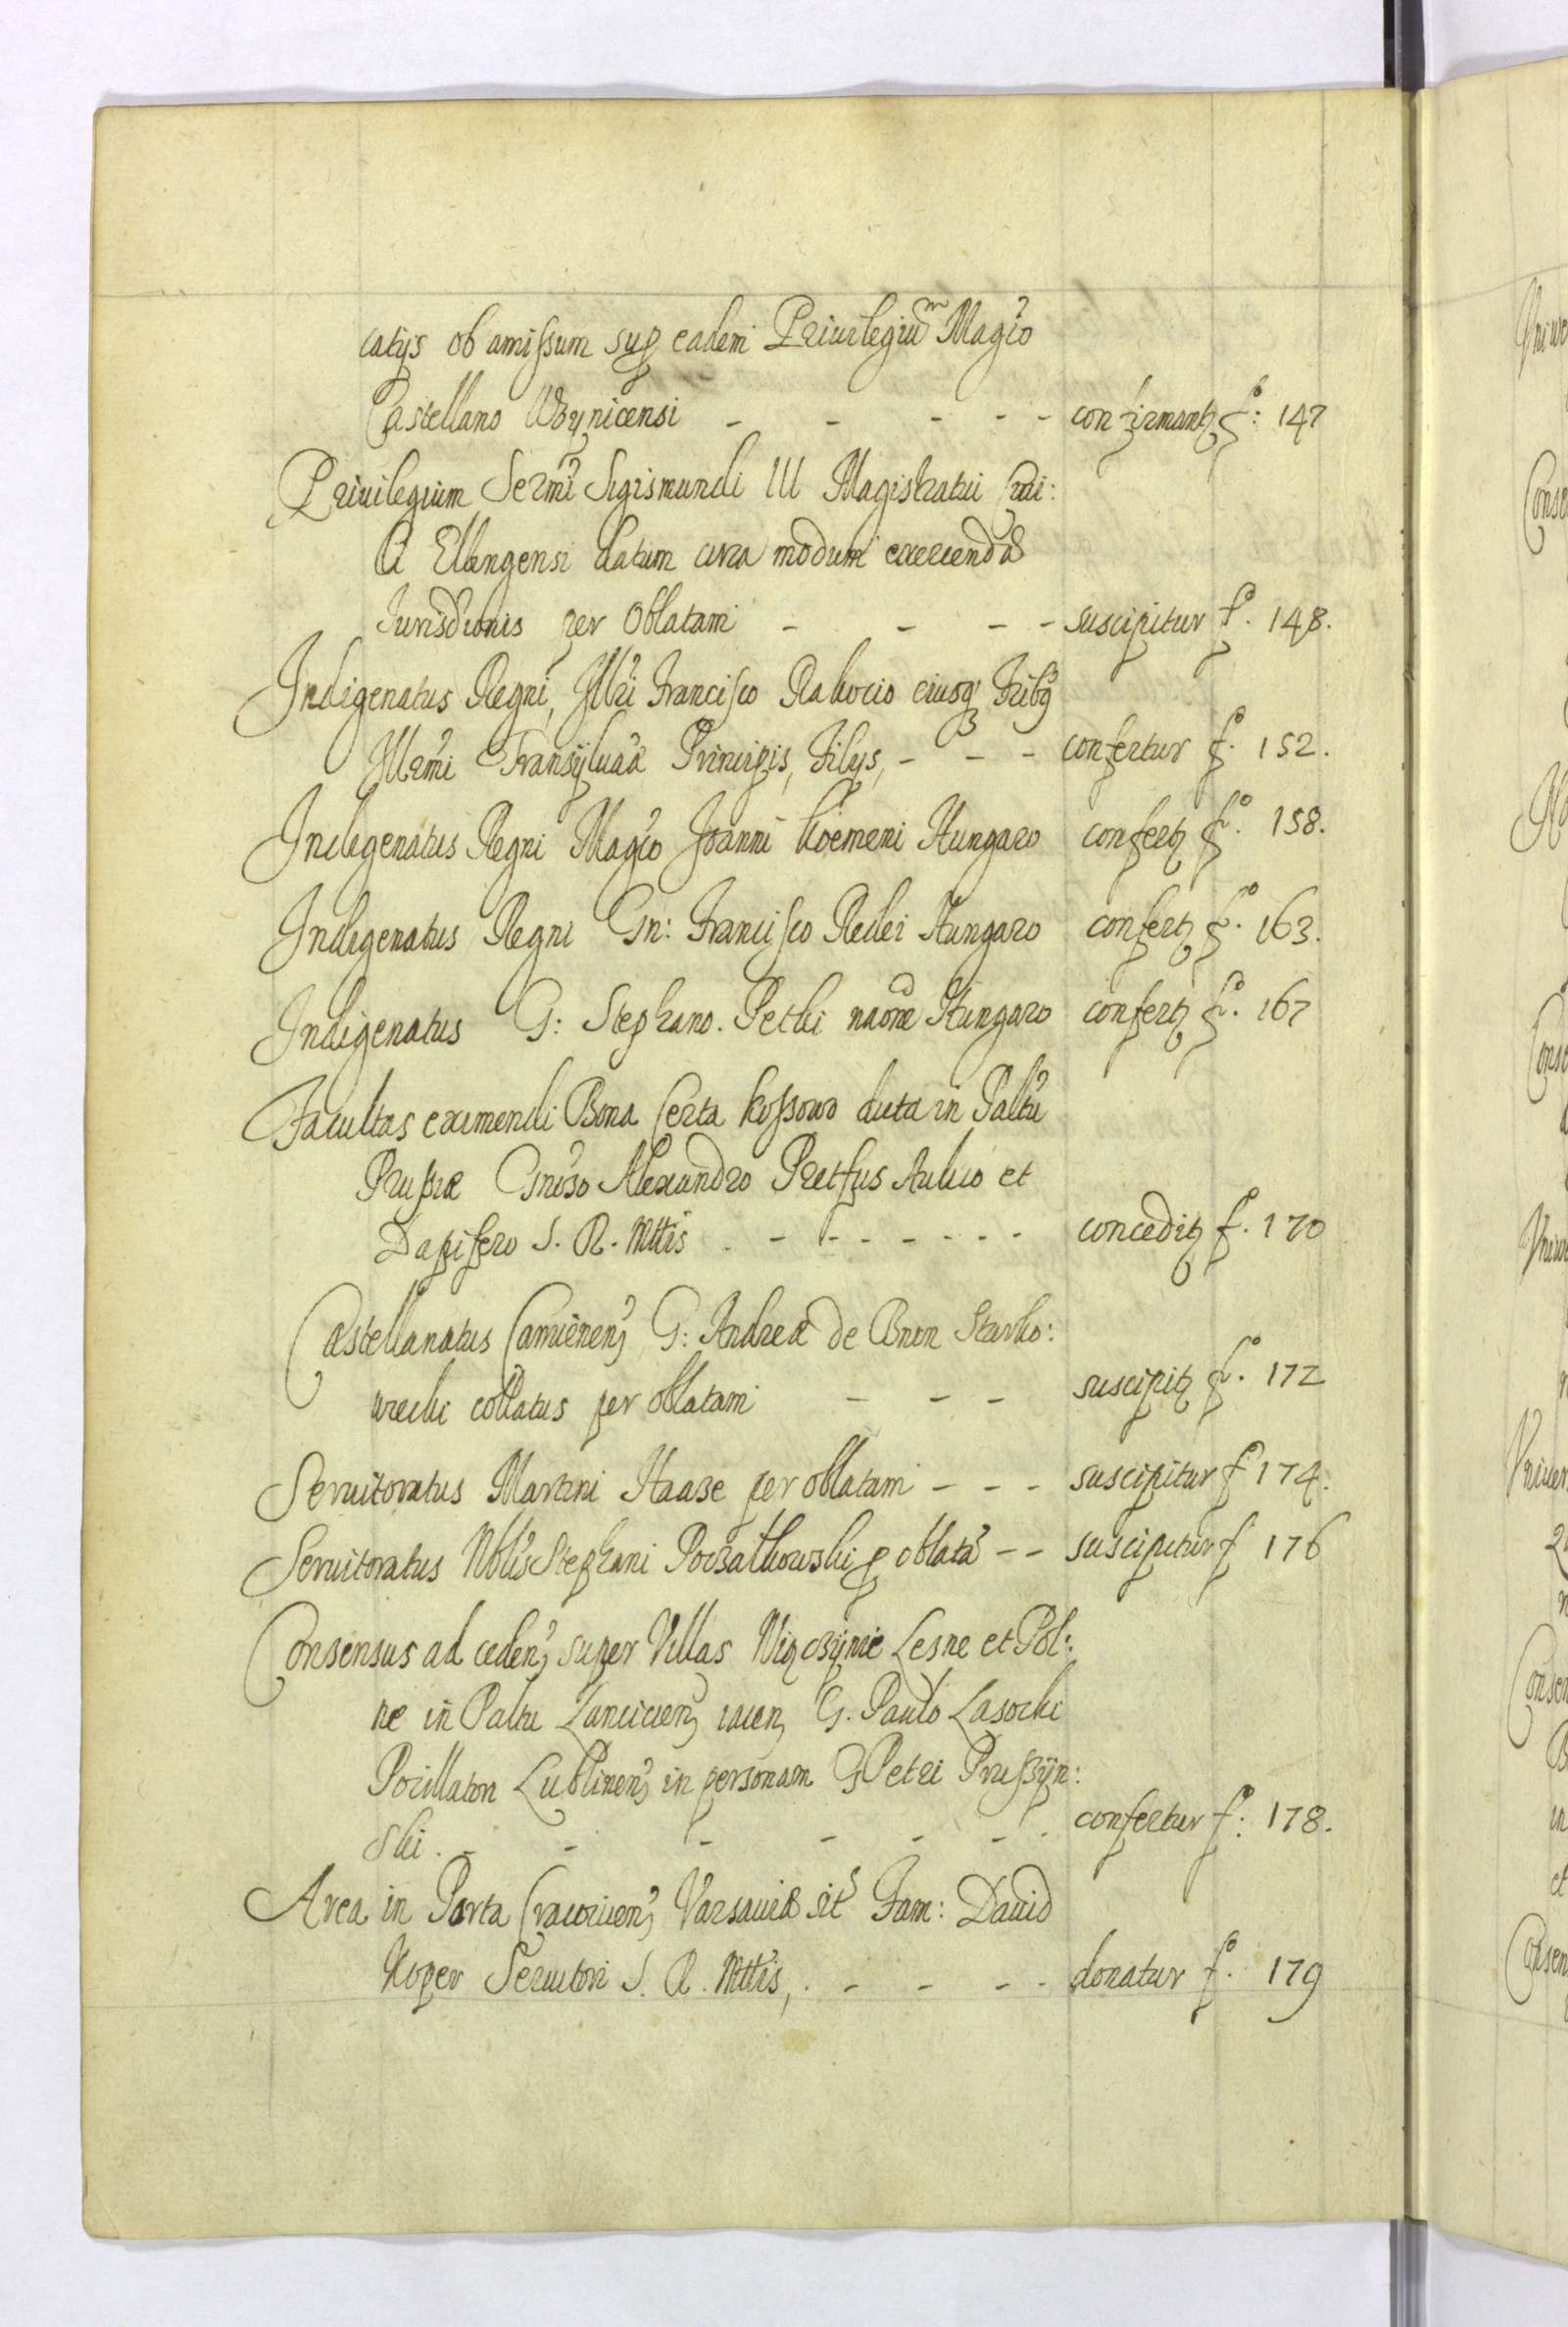 catijs ob amissum sup eadem Priuilegiũm Magco
Castellano Woynicensi - - - - - confirmantz fo: 147
Priuilegium Sermi Sigismundi III Magistratui Ciui:
li Elbingensi datum circa modum exercendæ
Jurisdconis per Oblatam - - - - suscipitur fo. 148.
Indigenatus Regni, Illri Francisco Rakocio eiusq Fribg
Illrmi Transyluaæ Principis, Filijs, - - - confertur fo. 152.
Indigenatus Regni Magco Joanni Koemeni Hungaro confertz fo. 158.
Indigenatus Regni Gn: Francisco Redei Hungaro confertz fo. 163.
Indigenatus G: Stephano. Pethi naone Hungaro confertz fo. 167
Facultas eximendi Bona Certa Kossowo dicta in Paltu
Prussiæ Gnoso Alexandro Pretfus Aulico et
Dapifero S. R. Mttis . - - - - - - - conceditz fo. 170
Castellanatus Camienen, G: Andreæ de Bnin Starko:
wecki collatus per oblatam - - - suscipitz fo. 172
Seruitoratus Martini Haase per oblatam - - - suscipitur fo 174.
Seruitoratus Nblis Stephani Poczatkowski p oblatã - - suscipitur f 176
Consensus ad ceden, super Villas Lesne et Pol:
ne in Paltu Lancicien, iacen, G. Paulo Lasocki
Pocillatori Lublinen, in personam G Petri Pruszÿn:
ski . - - - - - - - confertur fo: 178.
Area in Porta Cracouien, Varsauiæ sit Fam: Dauid
Koper Seruitori S. R. Mttis, . - - - - donatur fo. 179